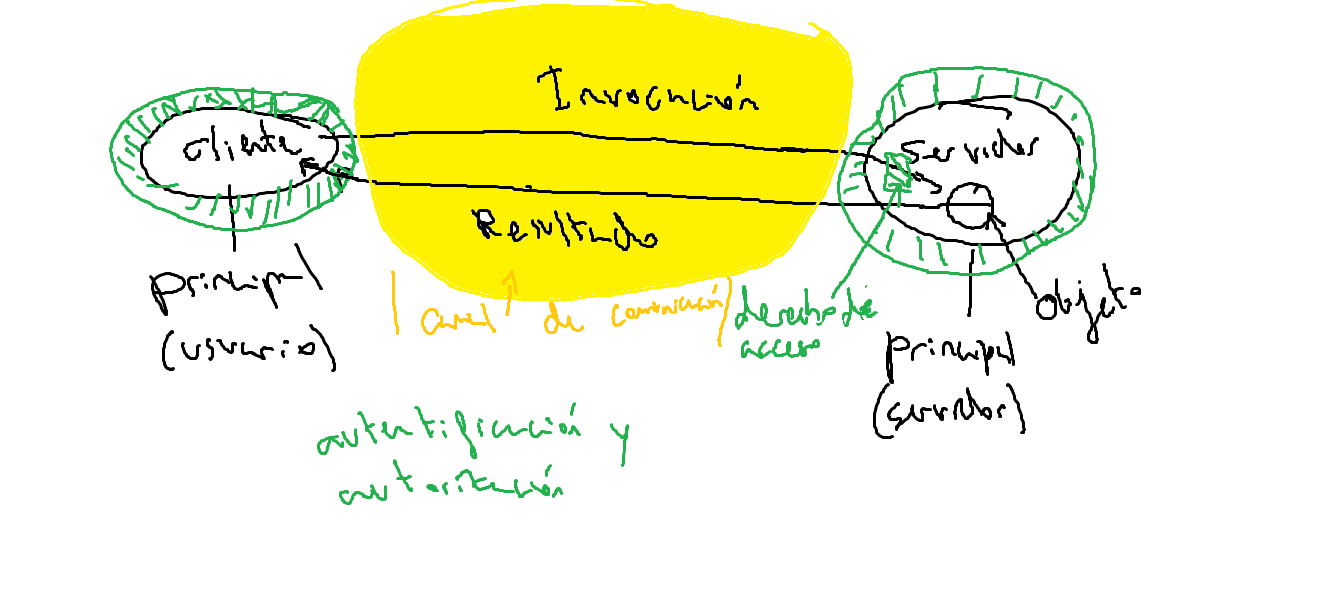 Invocación
cliente
Servidor
Resultado
principal
(usuario)
Canal de comunicación
derechos de
acceso
Objeto
principal
(servidor)
autentificación y
autorización